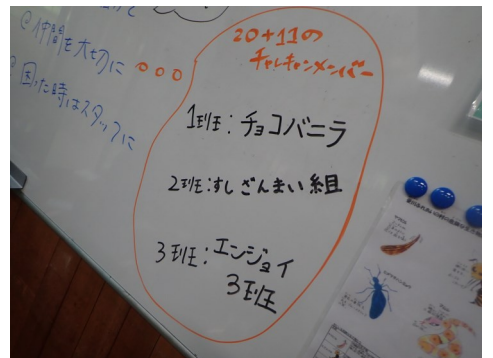 @仲間を大切に
困った時はスタッフに
20+11の
チャレキャンメンバー
1班:チョコバニラ
2班:すしざんまい組
3班:エンジョイ
3班